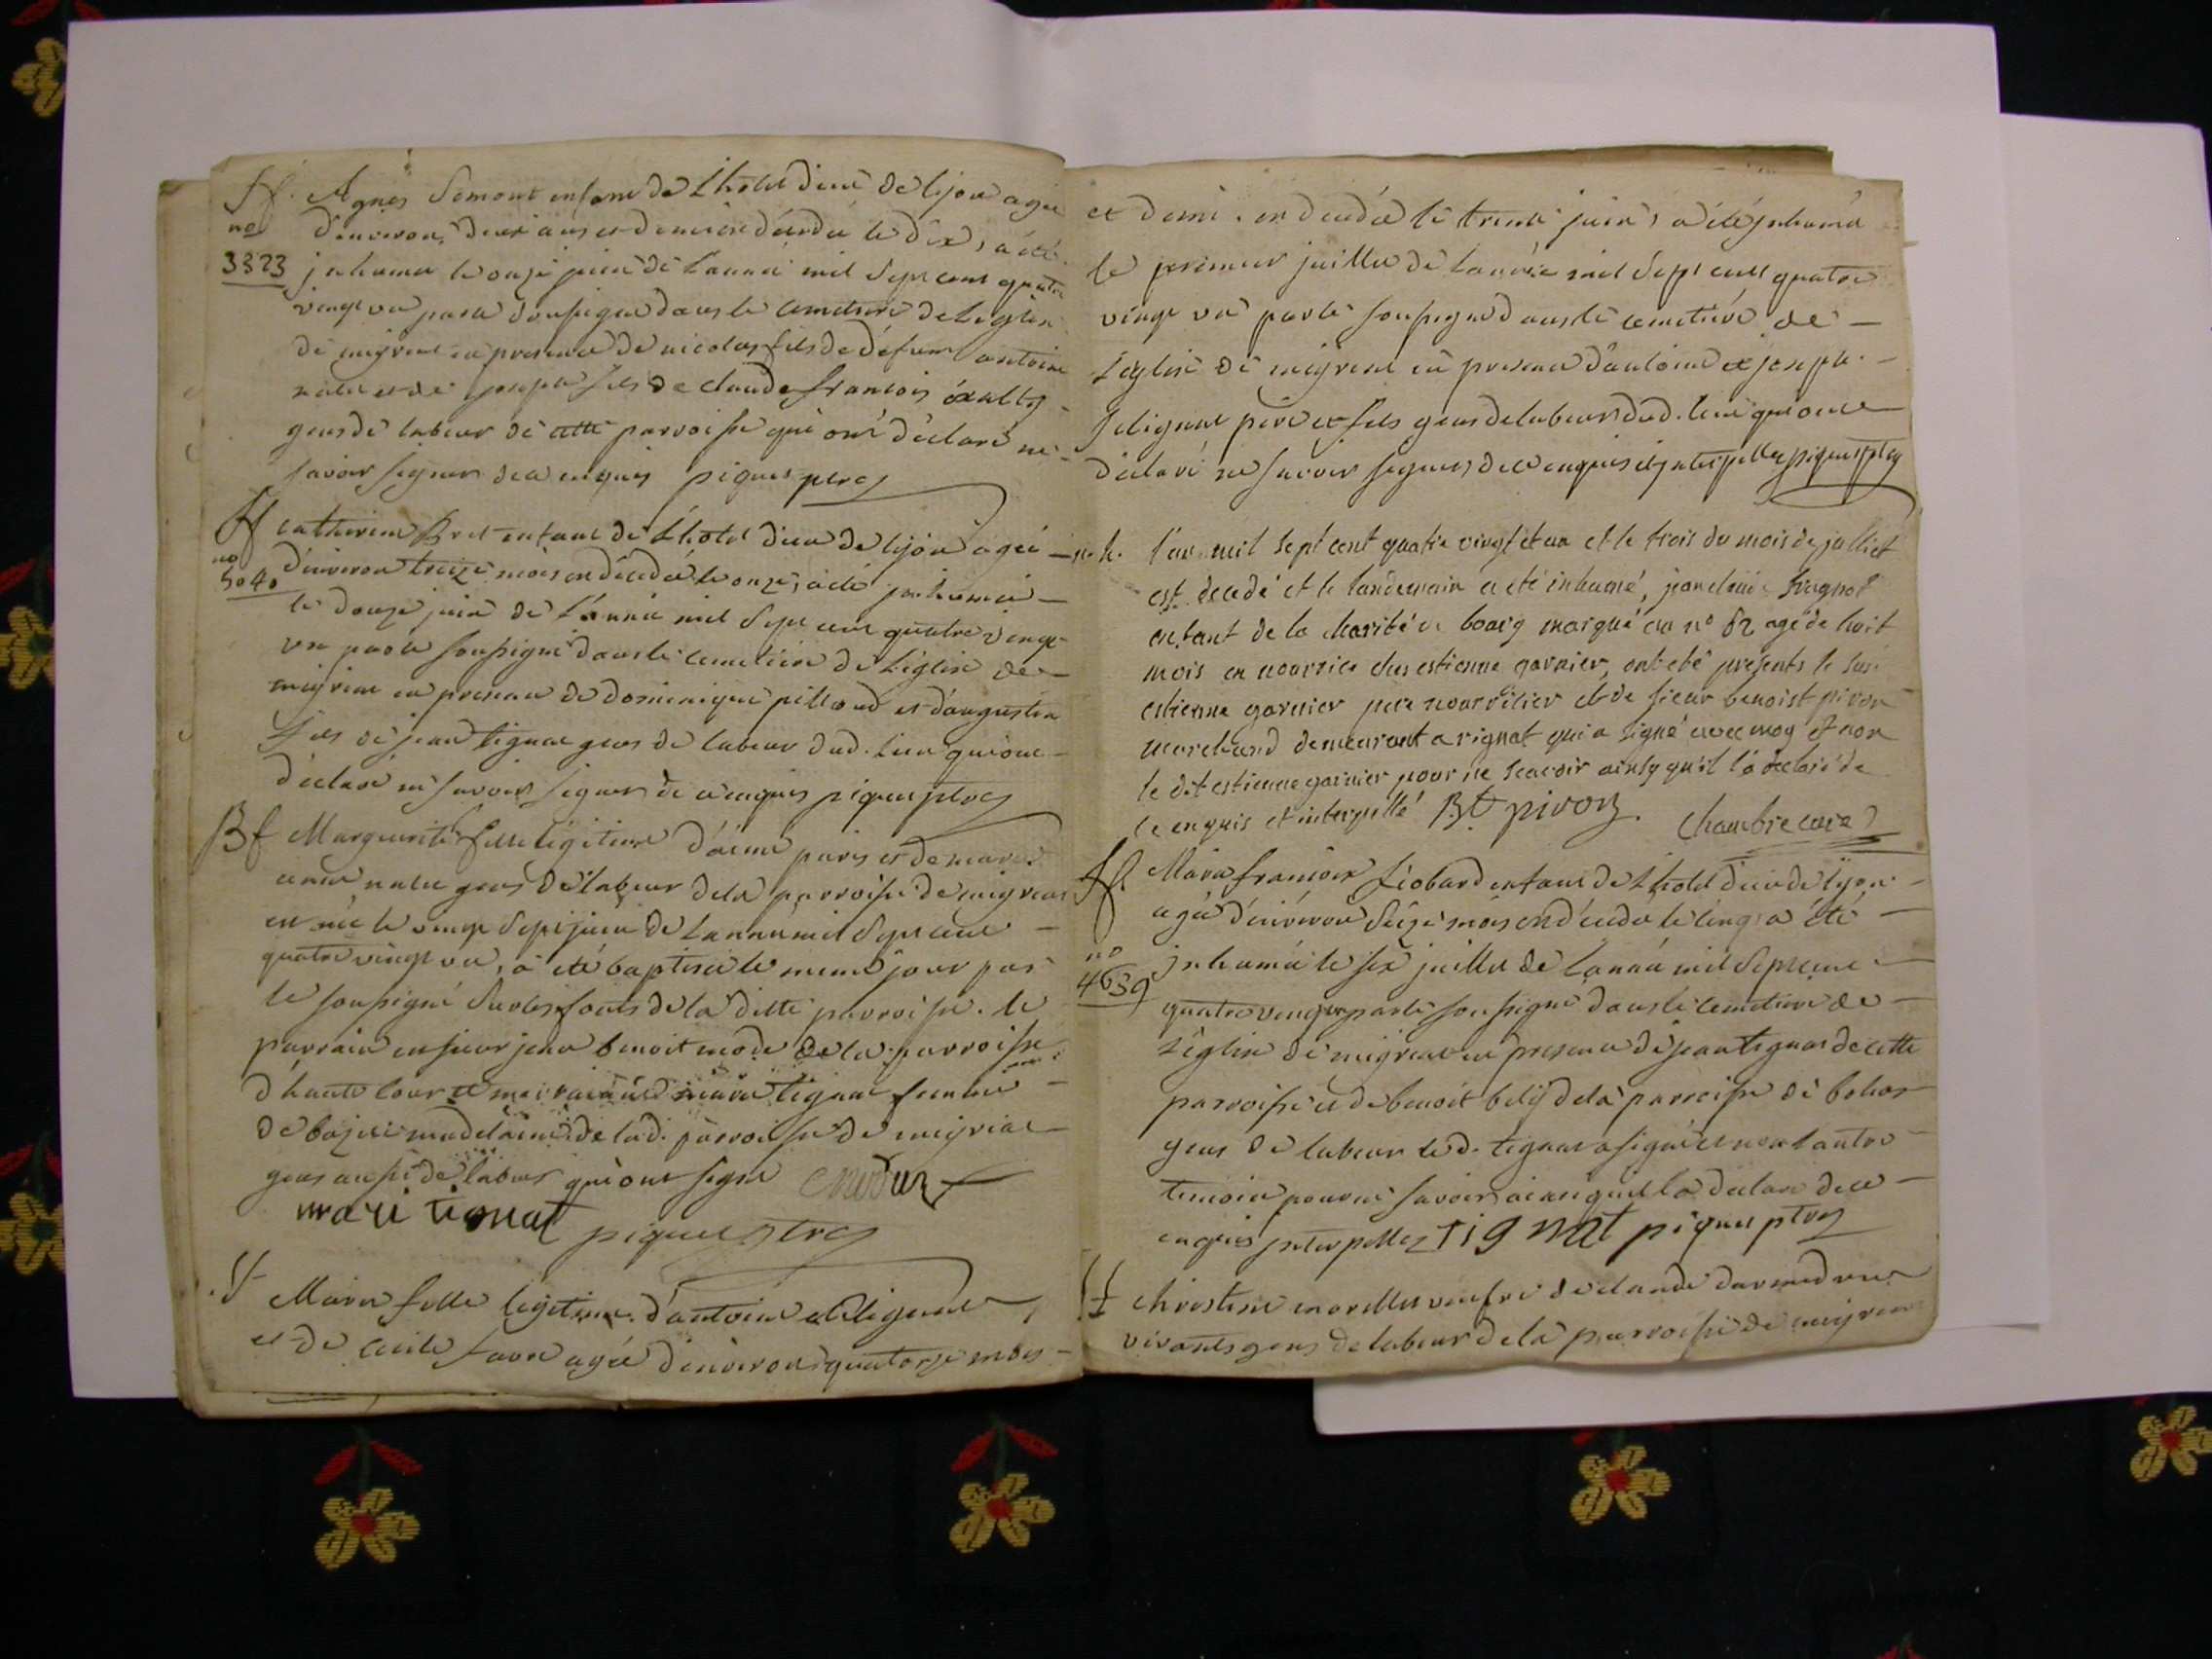 Sf. Agnes Semont enfant de L'hotel dieu de lyon agée
no d'environ deux ans et demi est décédée le dix, a été
3323 inhumée le onze juin de l'année mil sept cent quatre
vingt un par le soussigné dans le cimetiere de l'eglise
de meyriat en presence de nicolas fils de défunt antoine
et de joseph fils de claude francois
gens de labeur de cette parroisse qui ont déclaré ne
savoir signer de ce enquis piquet ptre
Sf catherine Bret enfant de L'hotel dieu de lyon agée
no d'environ treize mois en décédée le onze, a été inhumée
5040 le douze juin de l'année mil sept cent quatre vingt
un par le soussigné dans le cimetiere de L'église de
meyriat en presence de dominique pilloud et d'augustin
fils de jean tignat gens de labeur dud. lieu qui ont
déclaré ne savoir signer de ce enquis piquet ptre
Bf Marguerite fille légitime d'aimé paris et de marie
gens de labeur de la parroisse de meyriat
est née le vingt sept juin de l'année mil sept cent
quatre vingt un, a été baptisée le meme jour par
le soussigné sur les fonts de la ditte parroisse. le
parrain en sieur jean benoit de la parroisse
d'hautecour et marie tignat femme
de madelaine de lad. parroisse de meyriat
gens aussi de labeur qui ont signé
marie tignat piquet ptre
Sf Marie fille légitime d'antoine
et de agée d'environ quatorze mois
et demi. en décédée le trente juin, a été inhumée
le premier juillet de l'année mil sept cent quatre
vingt un par le soussigné dans le cimetiere de
l'église de meyriat en presence d'antoine et joseph
pere et fils gens de labeur dud. lieu qui ont
déclaré ne savoir signer de ce enquis et interpellés piquet ptre
l'an mil sept cent quatre vingt et un et le trois du mois de julliet
est decedé et le landemain a eté inhumé,
enfant de la charité de bourg marqué au no 82 agé de huit
mois en nourrice ches estienne garnier, ont eté presents le sus
estienne garnier pere nourricier et de sieur benoist pivon
marchand demeurant a rignat qui a signé avec moy et non
le dit estienne garnier pour ne scavoir ainsy qu'il l'a declaré de
ce enquis et interpellé Bt pivon. chambre curé
Sf. Marie francoise Liobard enfant de L'hotel dieu de lyon
agée d'environ seize mois en décédée le cinq a été
no inhumée le six juillet de l'année mil sept cent
4639 quatre vingt un par le soussigné dans le cimetiere de
L'église de meyriat en presence de jean tignat de cette
parroisse et de benoit bely de la parroisse de bohas
gens de labeur led. tignat a signé et non l'autre
temoin pour ne savoir ainsi qu'il l'a declaré de ce
enquis interpellés Tignat piquet ptre
Sf christine de claude
vivants gens de labeur de la parroisse de meyriat